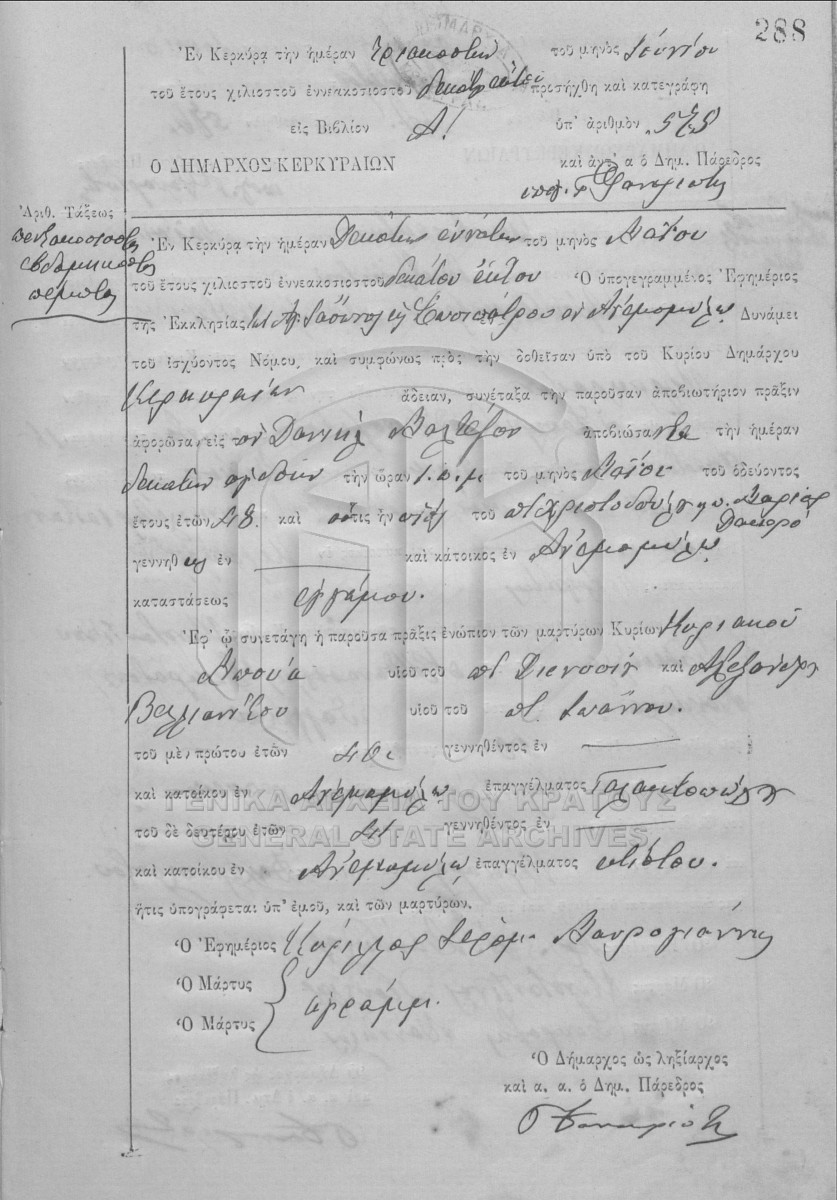 288
Ἐν Κερκύρᾳ τὴν ἡμέραν τριακοστὴν τοῦ μηνὸς Ἰουνίου
τοῦ ἔτους χιλιοστοῦ ἐννεακοσιοστοῦ δεκάτου ἕκτου προσήχθη καὶ κατεγράφη
εἰς Βιβλίον Α! ὑπ' ἀριθμὸν 575
Ο ΔΗΜΑΡΧΟΣ ΚΕΡΚΥΡΑΙΩΝ καὶ ἀντ' α ὁ Δημ. Πάρεδρος
Ἀριθ. Τάξεως
πεντακοσιοστὴ
ἑβδομηκοστὴ
πέμπτη
Ἐν Κερκύρᾳ τὴν ἡμέραν Δεκάτην ἐννάτην τοῦ μηνὸς Μαΐου
τοῦ ἔτους χιλιοστοῦ ἐννεακοσιοστοῦ δεκάτου ἕκτου Ὁ ὑπογεγραμμένος Ἐφημέριος
τῆς Ἐκκλησίας Ἰάσωνος καὶ Σωσιπάτρου ἐν Ἀνεμομύλῳ Δυνάμει
τοῦ ἰσχύοντος Νόμου, καὶ συμφώνως πρὸς τὴν δοθεῖσαν ὑπὸ τοῦ Κυρίου Δημάρχου
Κερκυραίων ἄδειαν, συνέταξα τὴν παροῦσαν ἀποβιωτήριον πρᾶξιν
ἀφορῶσαν εἰς τὸν Δανιὴλ ἀποβιώσαντα τὴν ἡμέραν
δεκάτην ὀγδόην τὴν ὥραν 1. π.μ τοῦ μηνὸς Μαΐου τοῦ ὁδεύοντος
ἔτους ἐτῶν 48. καὶ ὅστις ἦν υἱὸς τοῦ π. Χριστοδούλου καὶ Μαρίας
γεννηθεὶς ἐν καὶ κάτοικος ἐν Ἀνεμομύλῳ
καταστάσεως ἐγγάμου.
Ἐφ' ᾧ συνετάγη ἡ παροῦσα πρᾶξις ἐνώπιον τῶν μαρτύρων Κυρίων Κυριακοῦ
υἱοῦ τοῦ π. Διονυσίου καὶ Ἀλεξάνδρου
Βελλιανίτου υἱοῦ τοῦ π. Ἰωάννου.
τοῦ μὲν πρώτου ἐτῶν γεννηθέντος ἐν
καὶ κατοίκου ἐν Ἀνεμομύλῳ ἐπαγγέλματος Γαλακτοπώλου
ΓΕΝΙΚΑ ΑΡΧΕΙΑ ΤΟΥ ΚΡΑΤΟΥΣ
τοῦ δὲ δευτέρου ἐτῶν γεννηθέντος ἐν
GENERAL STATE ARCHIVES
καὶ κατοίκου ἐν Ἀνεμομύλῳ ἐπαγγέλματος κτίστου.
ἥτις ὑπογράφεται ὑπ' ἐμοῦ, καὶ τῶν μαρτύρων.
Ὁ Ἐφημέριος Κύριλλος Ἱερομ. Μαυρογιάννης
Ὁ Μάρτυς
ἀγράμμ.
Ὁ Μάρτυς
Ὁ Δήμαρχος ὡς ληξίαρχος
καὶ α. α. ὁ Δημ. Πάρεδρος